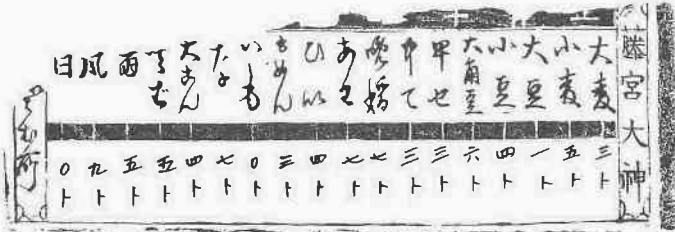 藤宮大神
大麦 三ト
小麦 五ト
大豆 一ト
小豆 四ト
大角豆 六ト
早せ 三ト
中て 三ト
晩稲 七ト
あわ 七ト
ひい 四ト
もめん 三ト
いも 0ト
な 七ト
大こん 四ト
そば 五ト
雨 五ト
風 九ト
日 0ト